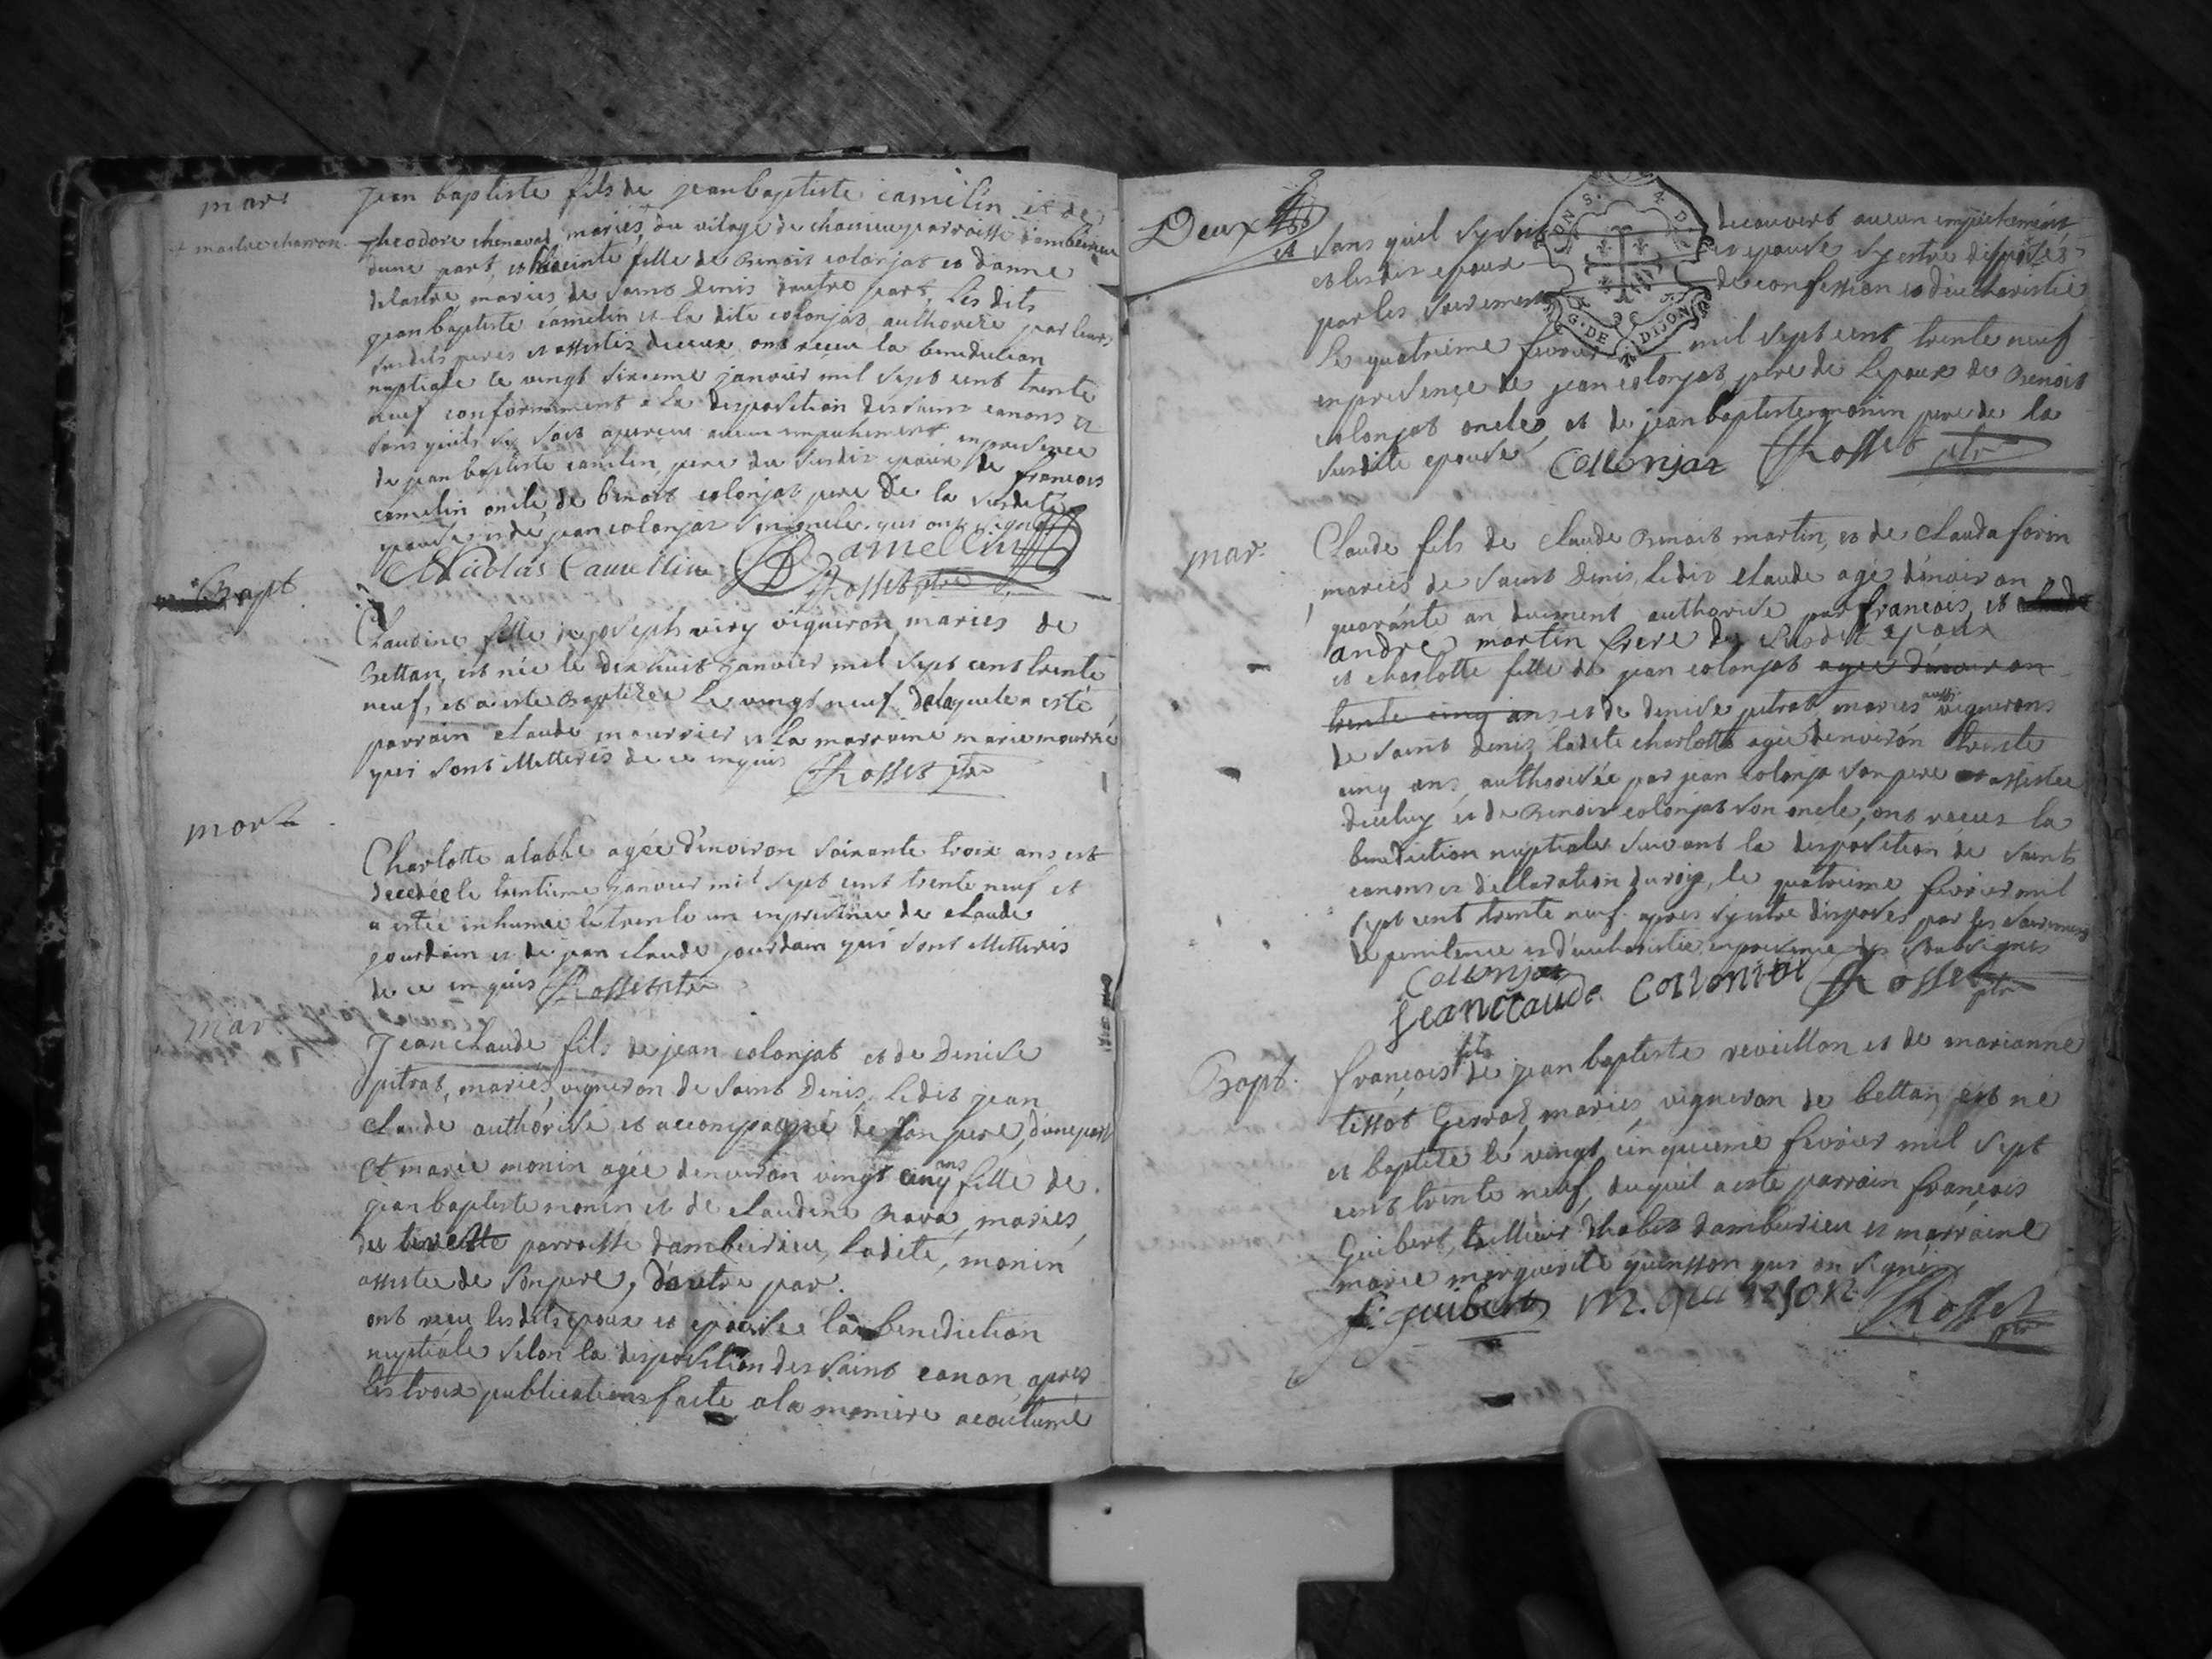 mar.
Jean baptiste fils de jean baptiste camelin et de
+ maitre charron
theodore chenaval mariés + du vilage de parroisse d'ambeirieu
dune part, et fille de Benoit colonjat et d'anne
delastre mariés de saint Denis d'autre part, les dits
jean baptiste camelin et la dite colonjat authorizé par leurs
susdits peres et assistés diceux ont receu la benediction
nuptiale le vingt sixieme janvier mil sept cent trente
neuf conformement a la disposition des saints canons et
sans quils sy soit aperceu aucun empechement en presence
de jean baptiste camelin pere du susdit epoux de francois
camelin oncle, de benoit colonjat pere de la susdite
epouse et de jean colonjat oncle qui ont signé
Nicolas Camellin Camellin
Rosset ptre
Bapt.
Claudine fille de joseph viry vigneron mariés de
Bettan, est née le dix huit janvier mil sept cent trente
neuf, et a esté Baptizée le vingt neuf de laquele a esté
parrain claude mourrier et la marraine marie mourrier
qui sont illetterés de ce enquis Rosset ptre
mort
Charlotte alabbe agée d'environ soixante trois ans est
decedée le trentieme janvier mil sept cent trente neuf et
a estée inhumée le trente un en presence de claude
jourdain et de jean claude jourdain qui sont illetterés
de ce enquis Rosset ptre
mar
Jean claude fils de jean colonjat et de Denise
pitrat, mariés, vigneron de saint Denis, ledit jean
claude authorisé et accompagné de son pere, dune part
Et marie monin agée denviron vingt cinq ans fille de
jean baptiste monin et de claudine Rava, mariés,
du tiret parroisse d'ambeirieu, ladite, monin
assistée de son pere, d'autre par.
ont receu lesdits epoux et epouse la benediction
nuptiale selon la disposition des saint canon, apres
les trois publications faite a la maniere acoutumé
Deux
et sans quil sy soit decouvert aucun empechement
et lesdit epoux et epouse sy estre disposés
par les sacremens de confession et d'eucharistie
G. DE DIJON
le quatrieme fevrier mil sept cent trente neuf
en presence de jean colonjat pere de lepoux de Benoit
colonjat oncle, et de jean baptiste monin pere de la
susdite epouse Collonjat Rosset ptre
mar.
Claude fils de claude Benoit martin, et de clauda forin
mariés de saint Denis, ledit claude agé d'environ
quarante an duement authorisé par francois, et
andre martin frere du susdit epoux
et charlotte fille de jean colonjat agée d'environ
trente cinq ans et de denise pitrat mariés aussi vignerons
de saint Denis, ladite charlotte agée d'environ trente
cinq ans, authorisée par jean colonja son pere et assistée
diceluy et de Benoit colonjat son oncle, ont receus la
benediction nuptiale suivant la disposition de saints
canons et declaration du roy, le quatrieme fevrier mil
sept cent trente neuf. apres sy estre disposés par les sacremens
de penitence et d'eucharistie en presence des soussignés
Collonjat
Jean Claude Collonjat Rosset ptr
Bapt.
françois fils de jean baptiste reveillon et de marianne
tissot mariés, vigneron de bettan, est né
et baptizé le vingt cinquieme fevrier mil sept
cent trente neuf, duquil a esté parrain francois
Guibert, tallieur d'habit d'ambeirieu et marraine
marie marguerite quinsson qui on signé
f. guibert M. quinson Rosset ptr